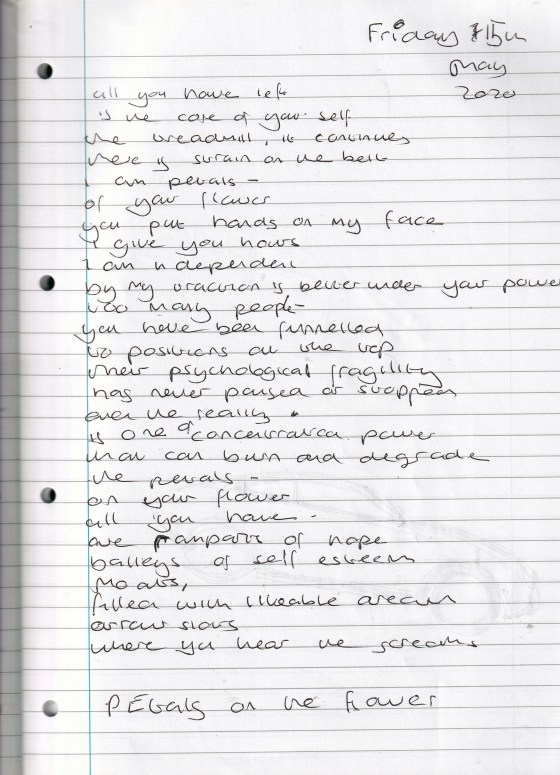 Friday 15th
May
2020
all you have left
is the core of your self
the treadmill, it continues
there is strain on the belt
I am petals -
of your flower
you put hands on my face
I give you hours
I am
by my traction is better under your power
too many people -
you have been funnelled
to positions at the top
their psychological fragility
has never paused or stopped
even the reality.
is one of concentrated power
that can burn and degrade
the petals -
on your flower
all you have -
are ramparts of hope
baileys of self esteem
moats,
filled with likeable
arrow slots
where you hear the screams
PEtals on the flower